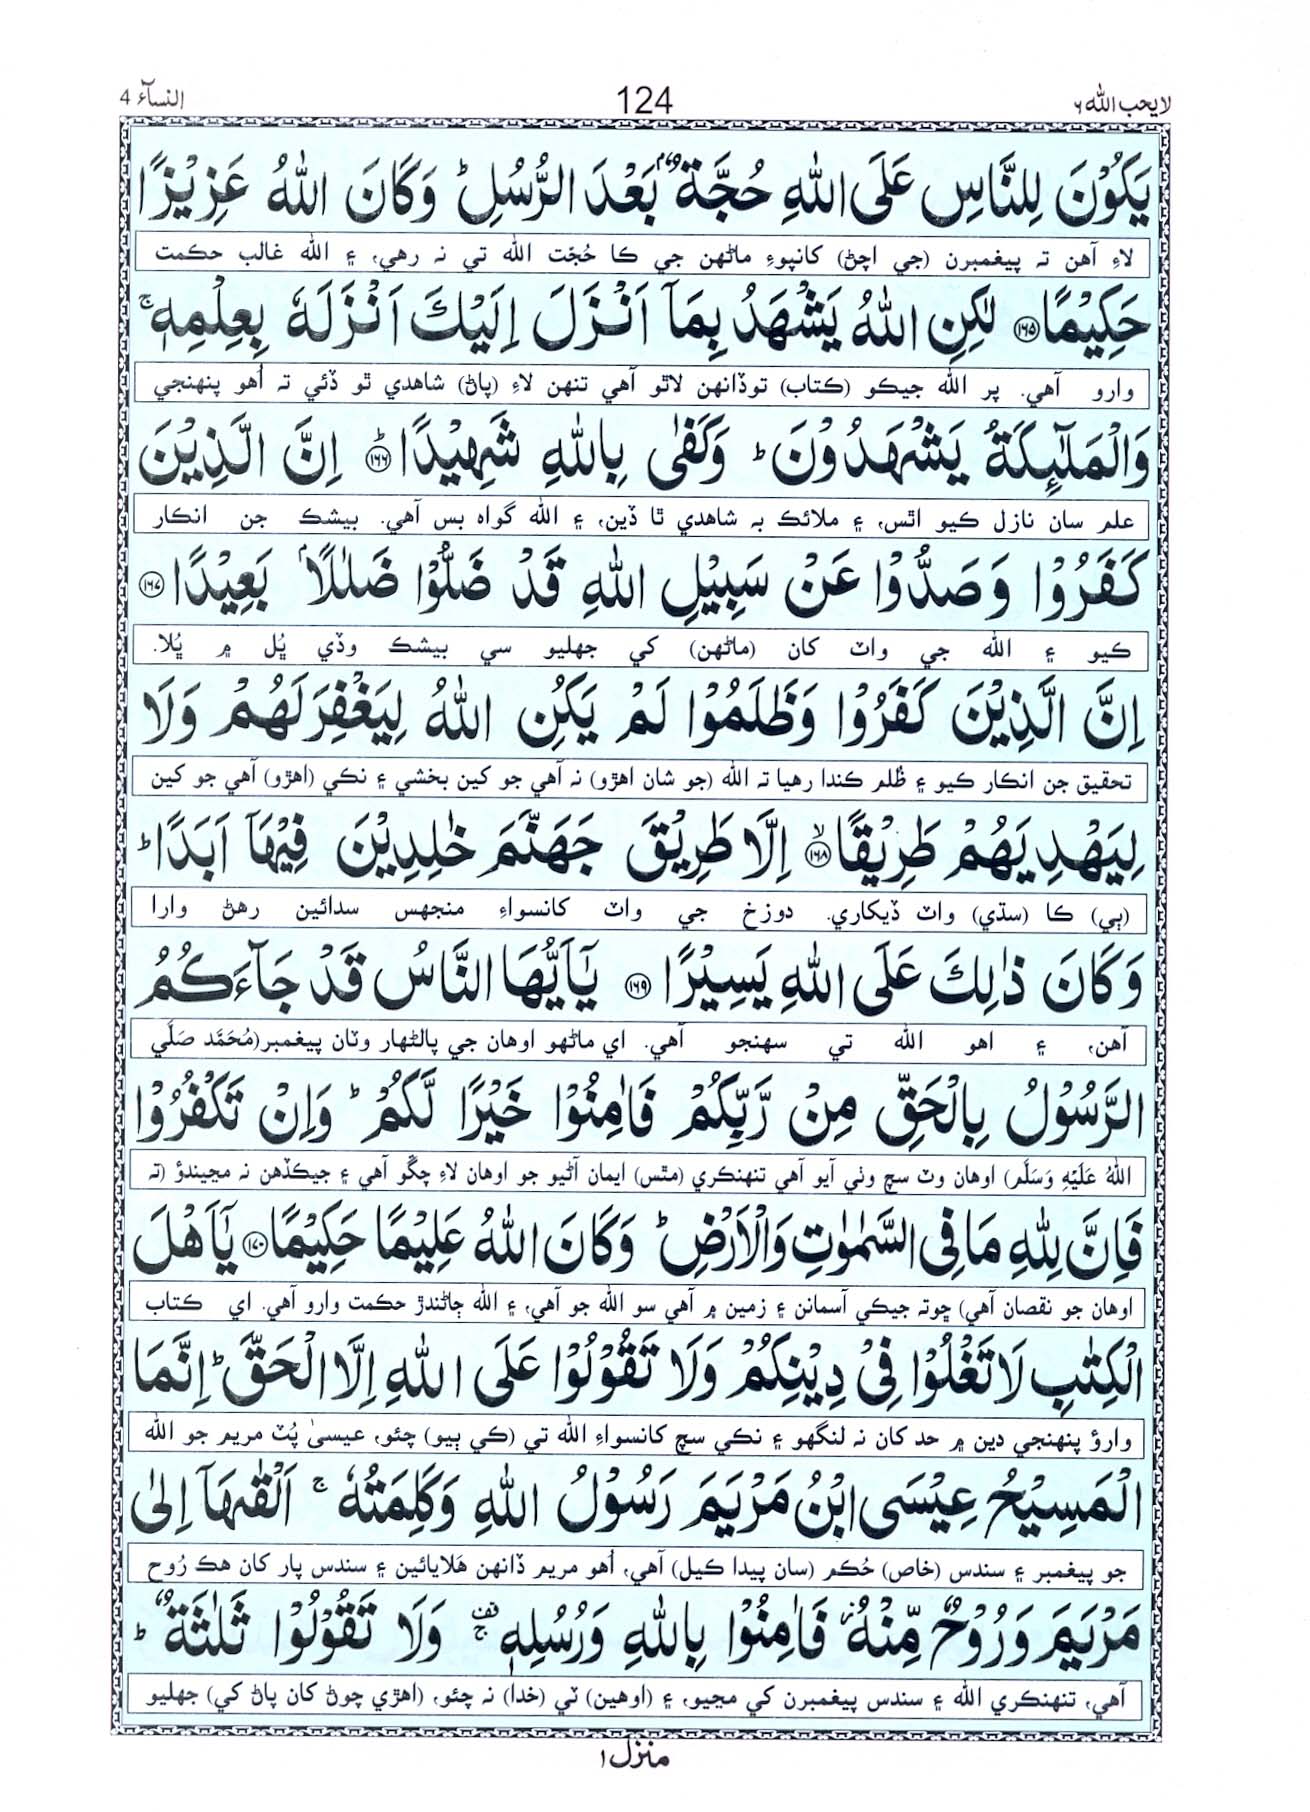 لايحب الله ٦
124
النسآء 4
يَكُوْنَ لِلنَّاسِ عَلَى اللّٰهِ حُجَّةٌۢ بَعْدَ الرُّسُلِ ؕ وَكَانَ اللّٰهُ عَزِيْزًا
لاءِ آهن ته پيغمبرن (جي اچڻ) کانپوءِ ماڻهن جي ڪا حُجّت الله تي نہ رهي، ۽ الله غالب حڪمت
حَكِيْمًا ﴿۱۶۵﴾ لٰكِنِ اللّٰهُ يَشْهَدُ بِمَاۤ اَنْزَلَ اِلَيْكَ اَنْزَلَهٗ بِعِلْمِهٖ ۚ
وارو آهي. پر الله جيڪو (ڪتاب) توڏانهن لاٿو آهي تنهن لاءِ (پاڻ) شاهدي ٿو ڏئي ته اُهو پنهنجي
وَالْمَلٰٓئِكَةُ يَشْهَدُوْنَ ؕ وَكَفٰى بِاللّٰهِ شَهِيْدًا ﴿۱۶۶﴾ؕ اِنَّ الَّذِيْنَ
علم سان نازل ڪيو اٿس، ۽ ملائڪ بہ شاهدي ٿا ڏين، ۽ الله گواه بس آهي. بيشڪ جن انڪار
كَفَرُوْا وَصَدُّوْا عَنْ سَبِيْلِ اللّٰهِ قَدْ ضَلُّوْا ضَلٰلًاۢ بَعِيْدًا ﴿۱۶۷﴾
ڪيو ۽ الله جي واٽ کان (ماڻهن) کي جهليو سي بيشڪ وڏي ڀُل ۾ ڀُلا.
اِنَّ الَّذِيْنَ كَفَرُوْا وَظَلَمُوْا لَمْ يَكُنِ اللّٰهُ لِيَغْفِرَ لَهُمْ وَلَا
تحقيق جن انڪار ڪيو ۽ ظُلم ڪندا رهيا ته الله (جو شان اهڙو) نہ آهي جو کين بخشي ۽ نڪي (اهڙو) آهي جو کين
لِيَهْدِيَهُمْ طَرِيْقًا ﴿۱۶۸﴾ۙ اِلَّا طَرِيْقَ جَهَنَّمَ خٰلِدِيْنَ فِيْهَاۤ اَبَدًا ؕ
(ٻي) ڪا (سڌي) واٽ ڏيکاري. دوزخ جي واٽ کانسواءِ منجهس سدائين رهڻ وارا
وَكَانَ ذٰلِكَ عَلَى اللّٰهِ يَسِيْرًا ﴿۱۶۹﴾ يٰۤاَيُّهَا النَّاسُ قَدْ جَآءَكُمُ
آهن، ۽ اهو الله تي سهنجو آهي. اي ماڻهو اوهان جي پالڻهار وٽان پيغمبر(مُحَمَّد صَلَّي
الرَّسُوْلُ بِالْحَقِّ مِنْ رَّبِّكُمْ فَاٰمِنُوْا خَيْرًا لَّكُمْ ؕ وَاِنْ تَكْفُرُوْا
اللهُ عَلَيْهِ وَسَلَّم) اوهان وٽ سچ وٺي آيو آهي تنهنڪري (مٿس) ايمان آڻيو جو اوهان لاءِ چڱو آهي ۽ جيڪڏهن نہ مڃيندؤ (ته
فَاِنَّ لِلّٰهِ مَا فِى السَّمٰوٰتِ وَالْاَرْضِ ؕ وَكَانَ اللّٰهُ عَلِيْمًا حَكِيْمًا ﴿۱۷۰﴾ يٰۤاَهْلَ
اوهان جو نقصان آهي) ڇوته جيڪي آسمانن ۽ زمين ۾ آهي سو الله جو آهي، ۽ الله ڄاڻندڙ حڪمت وارو آهي. اي ڪتاب
الْكِتٰبِ لَا تَغْلُوْا فِيْ دِيْنِكُمْ وَلَا تَقُوْلُوْا عَلَى اللّٰهِ اِلَّا الْحَقَّ ؕ اِنَّمَا
وارؤ پنهنجي دين ۾ حد کان نہ لنگهو ۽ نڪي سچ کانسواءِ الله تي (ڪي ٻيو) چئو، عيسىٰ پُٽ مريم جو الله
الْمَسِيْحُ عِيْسَى ابْنُ مَرْيَمَ رَسُوْلُ اللّٰهِ وَكَلِمَتُهٗ ۚ اَلْقٰىهَاۤ اِلٰى
جو پيغمبر ۽ سندس (خاص) حُڪم (سان پيدا ڪيل) آهي، اُهو مريم ڏانهن هَلايائين ۽ سندس پار کان هڪ رُوح
مَرْيَمَ وَرُوْحٌ مِّنْهُ ؗ فَاٰمِنُوْا بِاللّٰهِ وَرُسُلِهٖ ۚ قف وَلَا تَقُوْلُوْا ثَلٰثَةٌ ؕ
آهي، تنهنڪري الله ۽ سندس پيغمبرن کي مڃيو، ۽ (اوهين) ٽي (خدا) نہ چئو، (اهڙي چوڻ کان پاڻ کي) جهليو
منزل ١